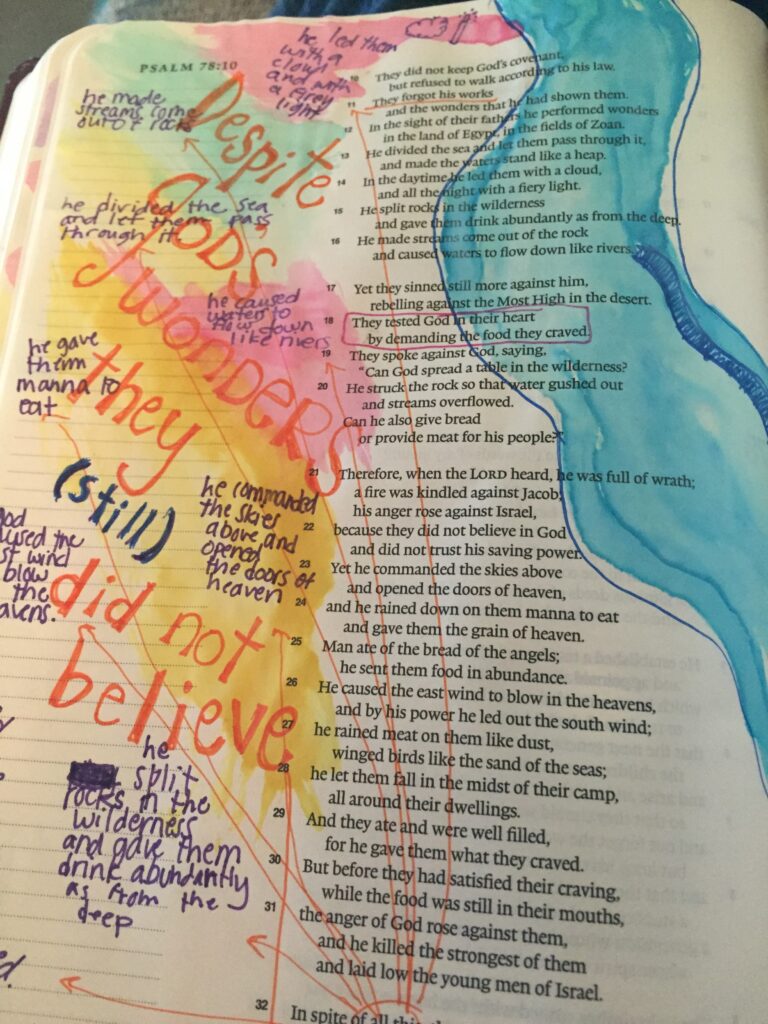 PSALM 78:10
he led them
with a
cloud
and with
a fiery
light
he made
streams come
out of rocks
Despite
he divided the sea
and let them pass
through it.
GOD'S
he caused
waters to
flow down
like rivers
wonders
he gave
them
manna to
eat
they
(still)
he commanded
the skies
above and
opened
the doors of
heaven
god
the
wind
blow
the
did not
believe
he
split
rocks in the
wilderness
and gave them
drink abundantly
as from the
deep
10 They did not keep God's covenant,
but refused to walk according to his law.
11 They forgot his works
and the wonders that he had shown them.
12 In the sight of their fathers he performed wonders
in the land of Egypt, in the fields of Zoan.
13 He divided the sea and let them pass through it,
and made the waters stand like a heap.
14 In the daytime he led them with a cloud,
and all the night with a fiery light.
15 He split rocks in the wilderness
and gave them drink abundantly as from the deep.
16 He made streams come out of the rock
and caused waters to flow down like rivers.
17 Yet they sinned still more against him,
rebelling against the Most High in the desert.
18 They tested God in their heart
by demanding the food they craved.
19 They spoke against God, saying,
"Can God spread a table in the wilderness?
20 He struck the rock so that water gushed out
and streams overflowed.
Can he also give bread
or provide meat for his people?"
21 Therefore, when the LORD heard, he was full of wrath;
a fire was kindled against Jacob;
his anger rose against Israel,
22 because they did not believe in God
and did not trust his saving power.
23 Yet he commanded the skies above
and opened the doors of heaven,
24 and he rained down on them manna to eat
and gave them the grain of heaven.
25 Man ate of the bread of the angels;
he sent them food in abundance.
26 He caused the east wind to blow in the heavens,
and by his power he led out the south wind;
27 he rained meat on them like dust,
winged birds like the sand of the seas;
28 he let them fall in the midst of their camp,
all around their dwellings.
29 And they ate and were well filled,
for he gave them what they craved.
30 But before they had satisfied their craving,
while the food was still in their mouths,
31 the anger of God rose against them,
and he killed the strongest of them
and laid low the young men of Israel.
32 In spite of all this